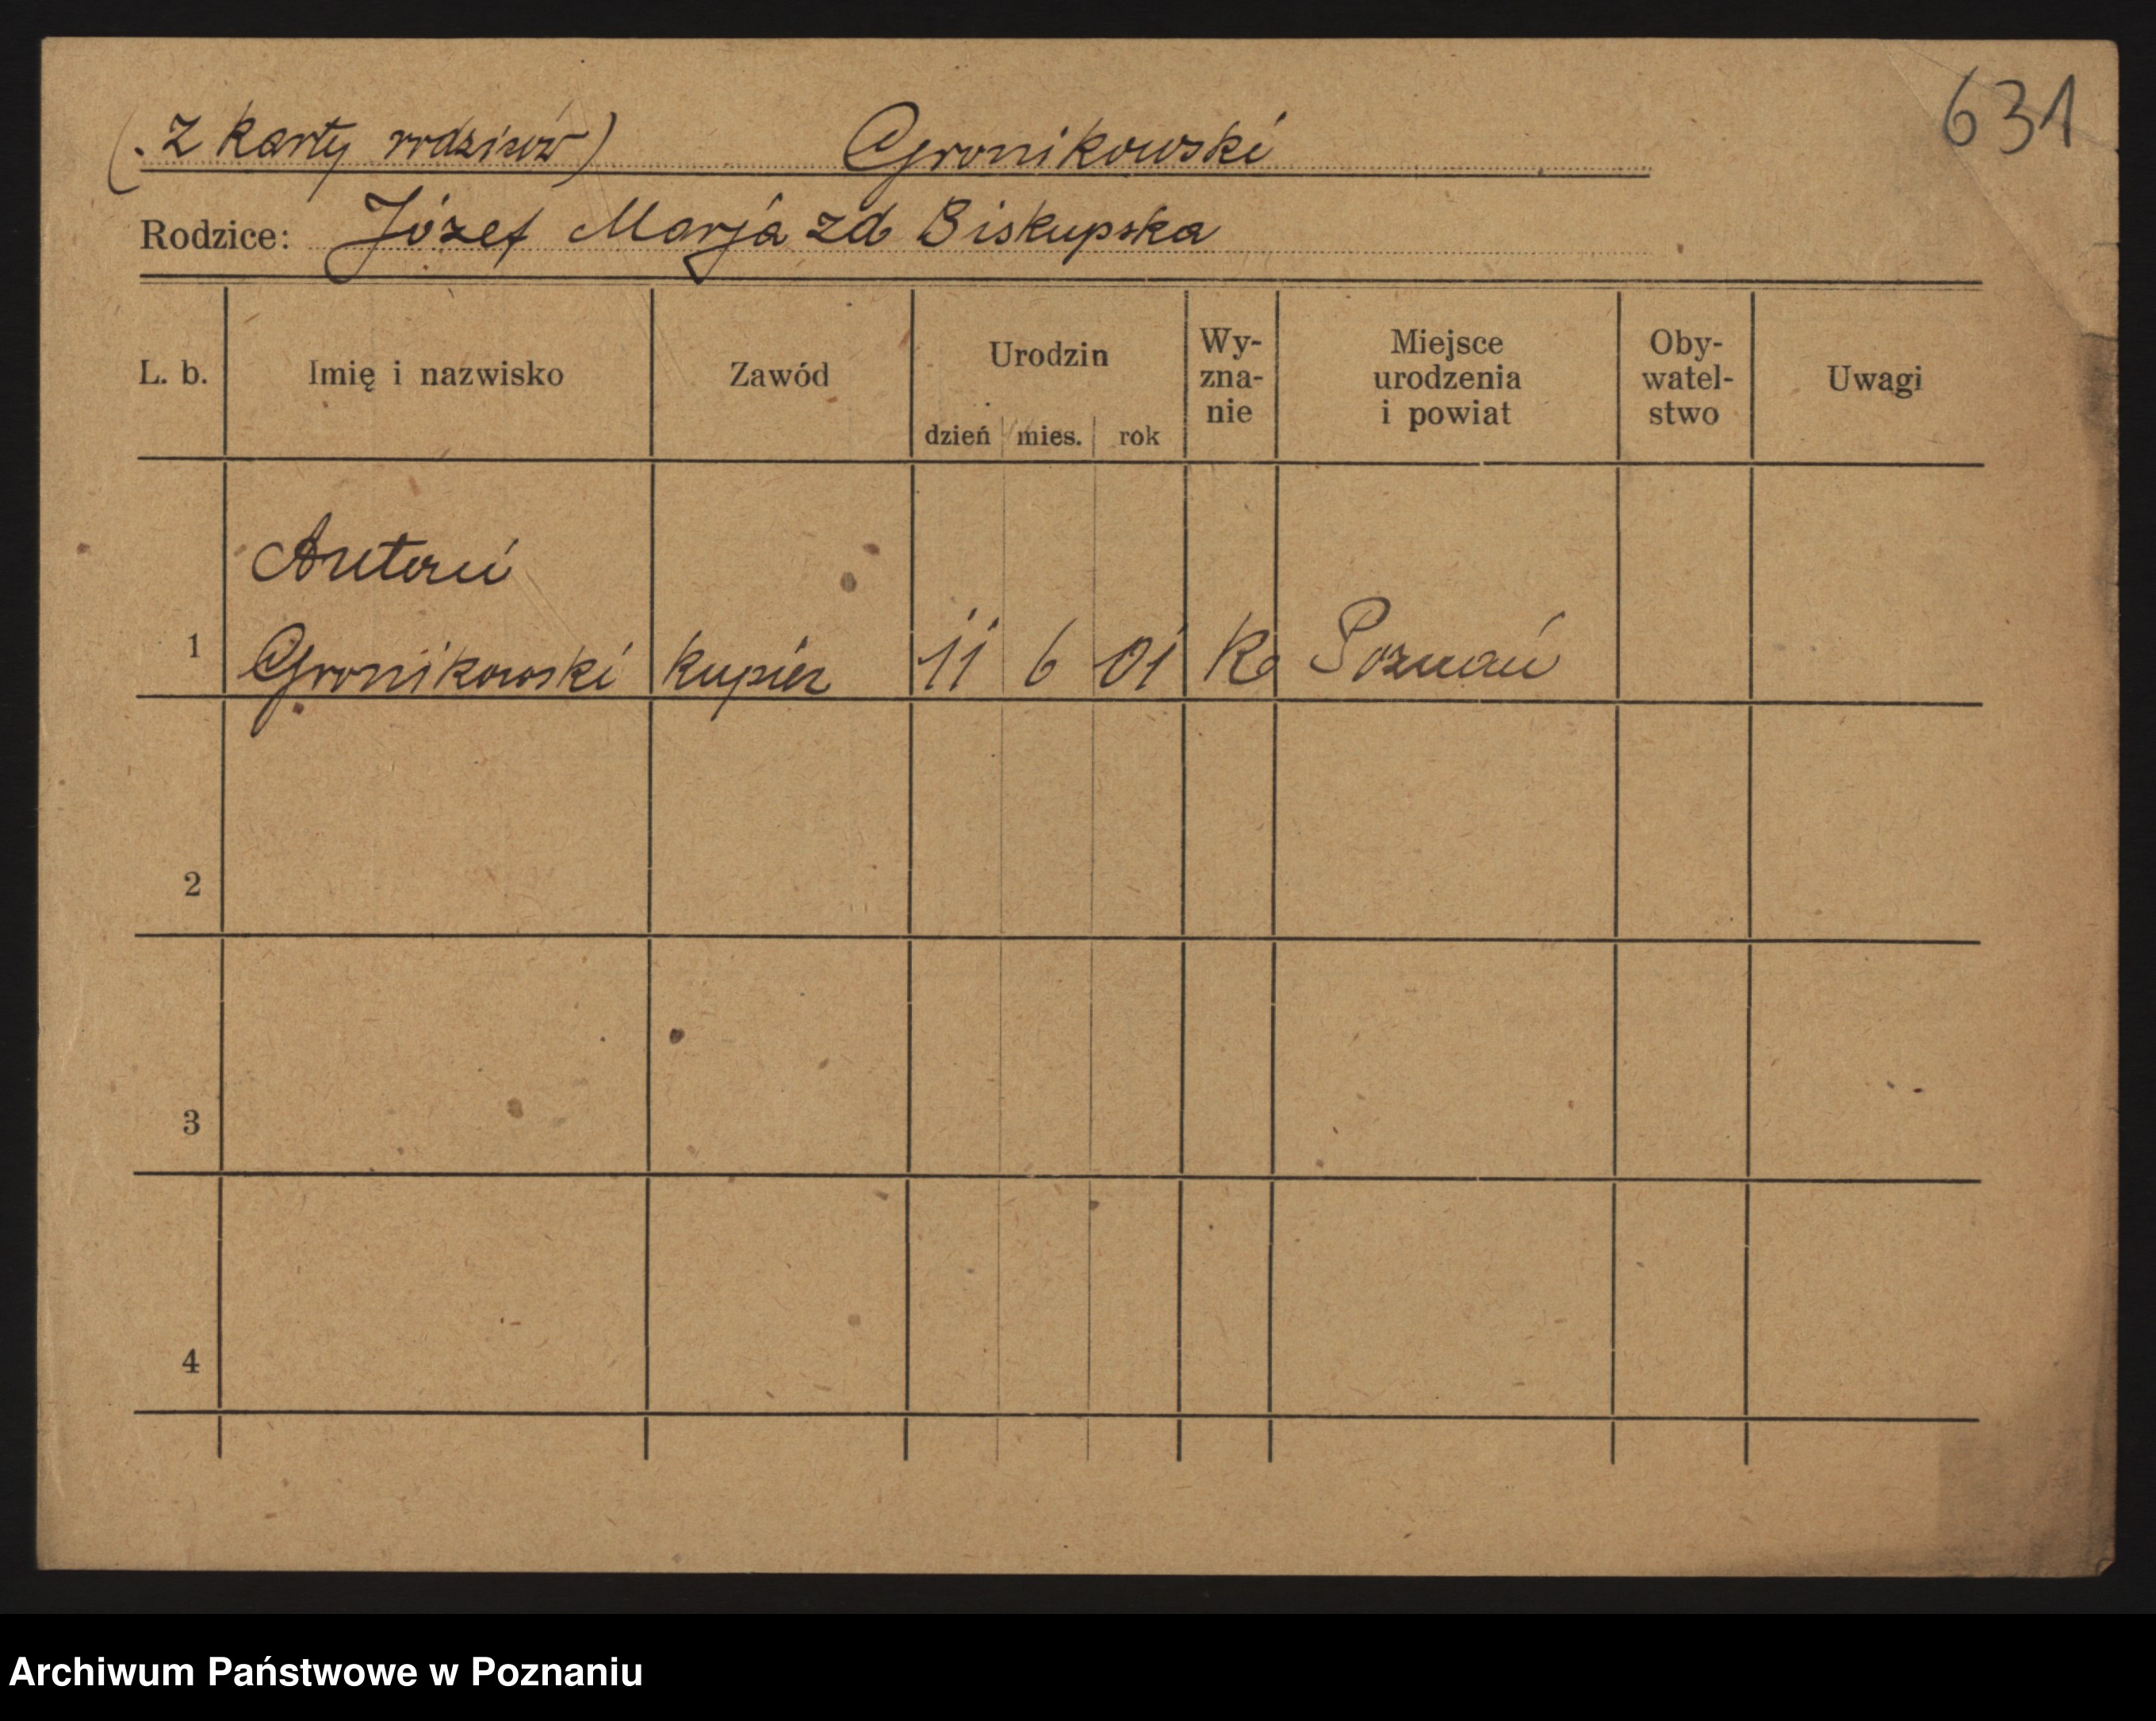 631
(. z karty rodziców) Gronikowski
Rodzice: Józef Marja zd Biskupska
L. b. Imię i nazwisko Zawód Urodzin dzień mies. rok Wy-zna-nie Miejsce urodzenia i powiat Oby-watel-stwo Uwagi
Antoni
1 Gronikowski kupiec 11 6 01 Ka Poznań
2
3
4
Archiwum Państwowe w Poznaniu